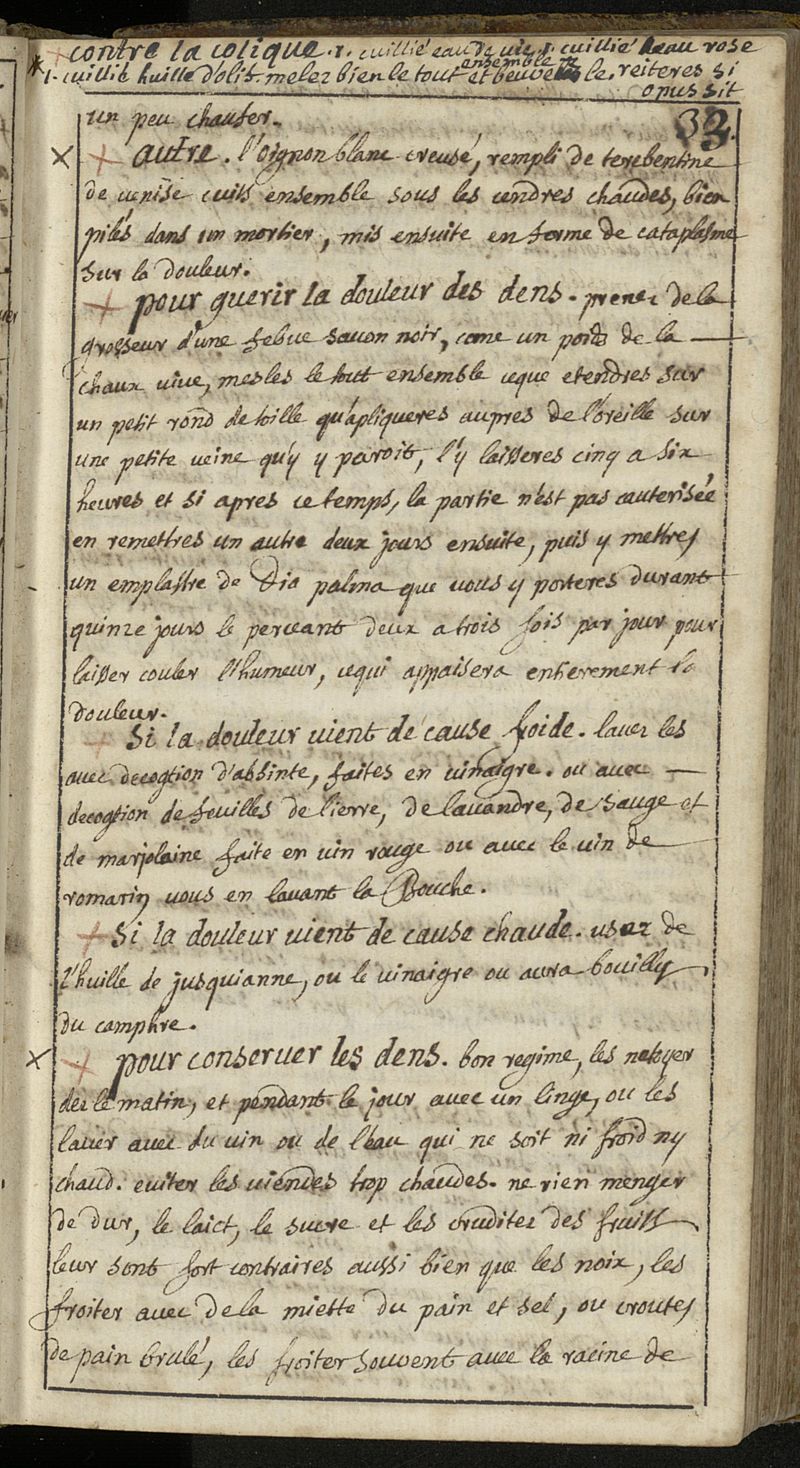 + contre la colique. 1. cuillié eau de vie 1. cuillié deau rose
1. cuillié huille dolis melez bien le tout ensemble et beuvez le, reiteres si
opus sit
33.
un peu chaufer.
+ autre. l'oignon blanc creusé, rempli de terebentine
de venise cuits ensemble sous les cendres chaudes, bien
pilés dans un mortier, mis ensuite en forme de cataplasme
sur la douleur.
+ pour guerir la douleur des dens. prenez de la
grosseur d'une febue sauon noir, come un poids de la
chaux viue, mesles le tout ensemble ceque etendres sur
un petit rond de toille qu'apliqueres aupres de l'oreille sur
une petite ueine qu'y y paroit, l'y laisseres cinq a six
heures et si apres ce temps, la partie n'est pas cauterisée
en remettres un autre deux jours ensuite, puis y mettres
un emplastre de Dia palma que uous y porteres durant
quinze jours le perceant deux a trois fois par jour pour
laisser couler l'humeur, cequi appaisera entierement la
douleur.
+ Si la douleur uient de cause froide. lauez les
auec decogtion d'absinte, faites en uinaigre. ou auec
decogtion de feuilles de lierre, de lauandre, de sauge et
de marjolaine faite en uin rouge ou auec le uin de
romarin uous en lauant la Bouche.
+ Si la douleur uient de cause chaude. usez de
l'huille de jusquianne, ou le uinaigre ou aura bouilly
du camphre.
+ pour conseruer les dens. bon regime, les netoyer
dez le matin, et pendant le jour auec un linge, ou les
lauer auec du uin ou de l'eau qui ne soit ni froid ny
chaud. euiter les uiendes trop chaudes. ne rien menger
de dur, le laict, le sucre et les cruditez des fruits
leur sont fort contraires aussi bien que les noix, les
froiter auec de la miette du pain et sel, ou croutes
de pain brulé, les froiter souuent auec la racine de